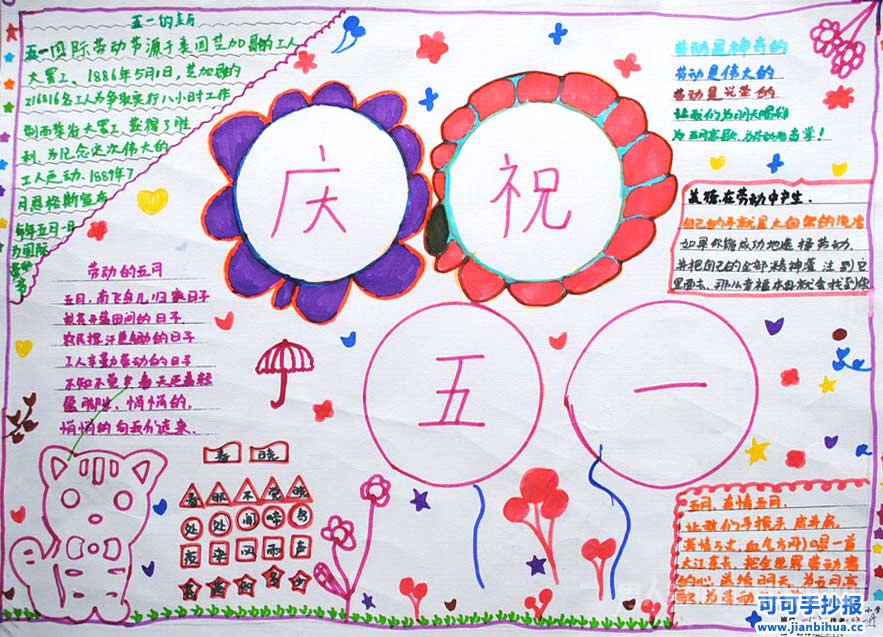 五一的来历
五一国际劳动节源于美国芝加哥的工人
大罢工、1886年5月1日,芝加哥的
216816名工人为争取实行八小时工作
制而举行大罢工、获得了胜
利、为纪念这次伟大的
工人运动、1889年7
月恩格斯宣布
每年五月一日
为国际
劳动
节
庆
祝
五
一
劳动是神奇的
劳动是伟大的
劳动是光荣的
让我们为明天喝彩
为五月高歌,为劳动者
美德在劳动中产生.
自己的手就是大自然的
如果你能成功地选择劳动.
并把自己的全部精神灌注到它
里面去、那么幸福本身就会找到你
劳动的五月
五月,南飞鸟儿归家日子
鲜花开的日子.
农民挥汗
工人辛勤劳动的日子
不知不觉
悄悄的,
悄悄的向我们走来、
春 晓
春眠不觉晓
处处闻啼鸟
夜来风雨声
花落知多少
五月、激情五月,
让我们手握手 肩并肩,
激情万丈,血气方刚唱一首
大江东去,把全世界劳动者
的心 献给明天、为五月高
歌 为劳动
可可手抄报
www.jianbihua.cc